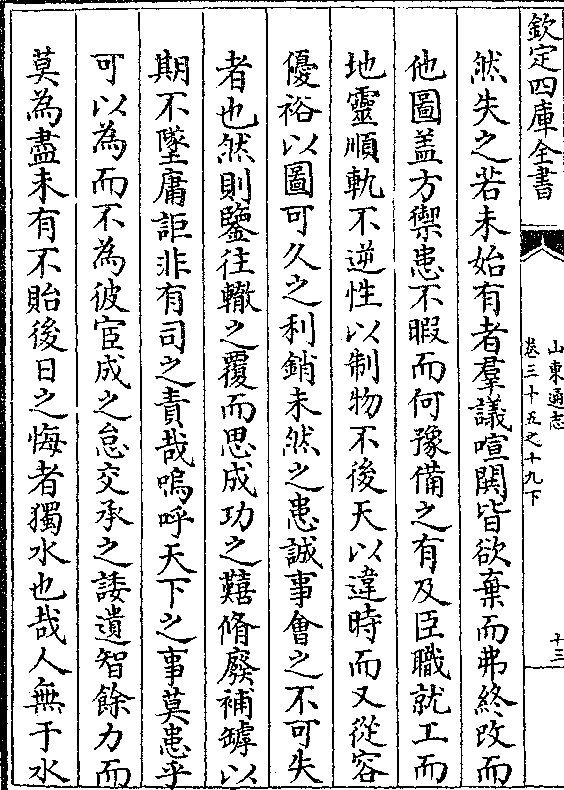 欽定四庫全書
山東通志
卷三十五之十九下
十三
然失之若未始有者羣議喧鬨皆欲棄而弗終改而
他圖盖方禦患不暇而何豫備之有及臣職就工而
地靈順軌不逆性以制物不後天以違時而又從容
優裕以圖可久之利銷未然之患誠事會之不可失
者也然則鑒往轍之覆而思成功之囏脩廢補罅以
期不墜庸詎非有司之責哉嗚呼天下之事莫患乎
可以為而不為彼宦成之怠交承之諉遺智餘力而
莫為盡未有不貽後日之悔者獨水也哉人無于水